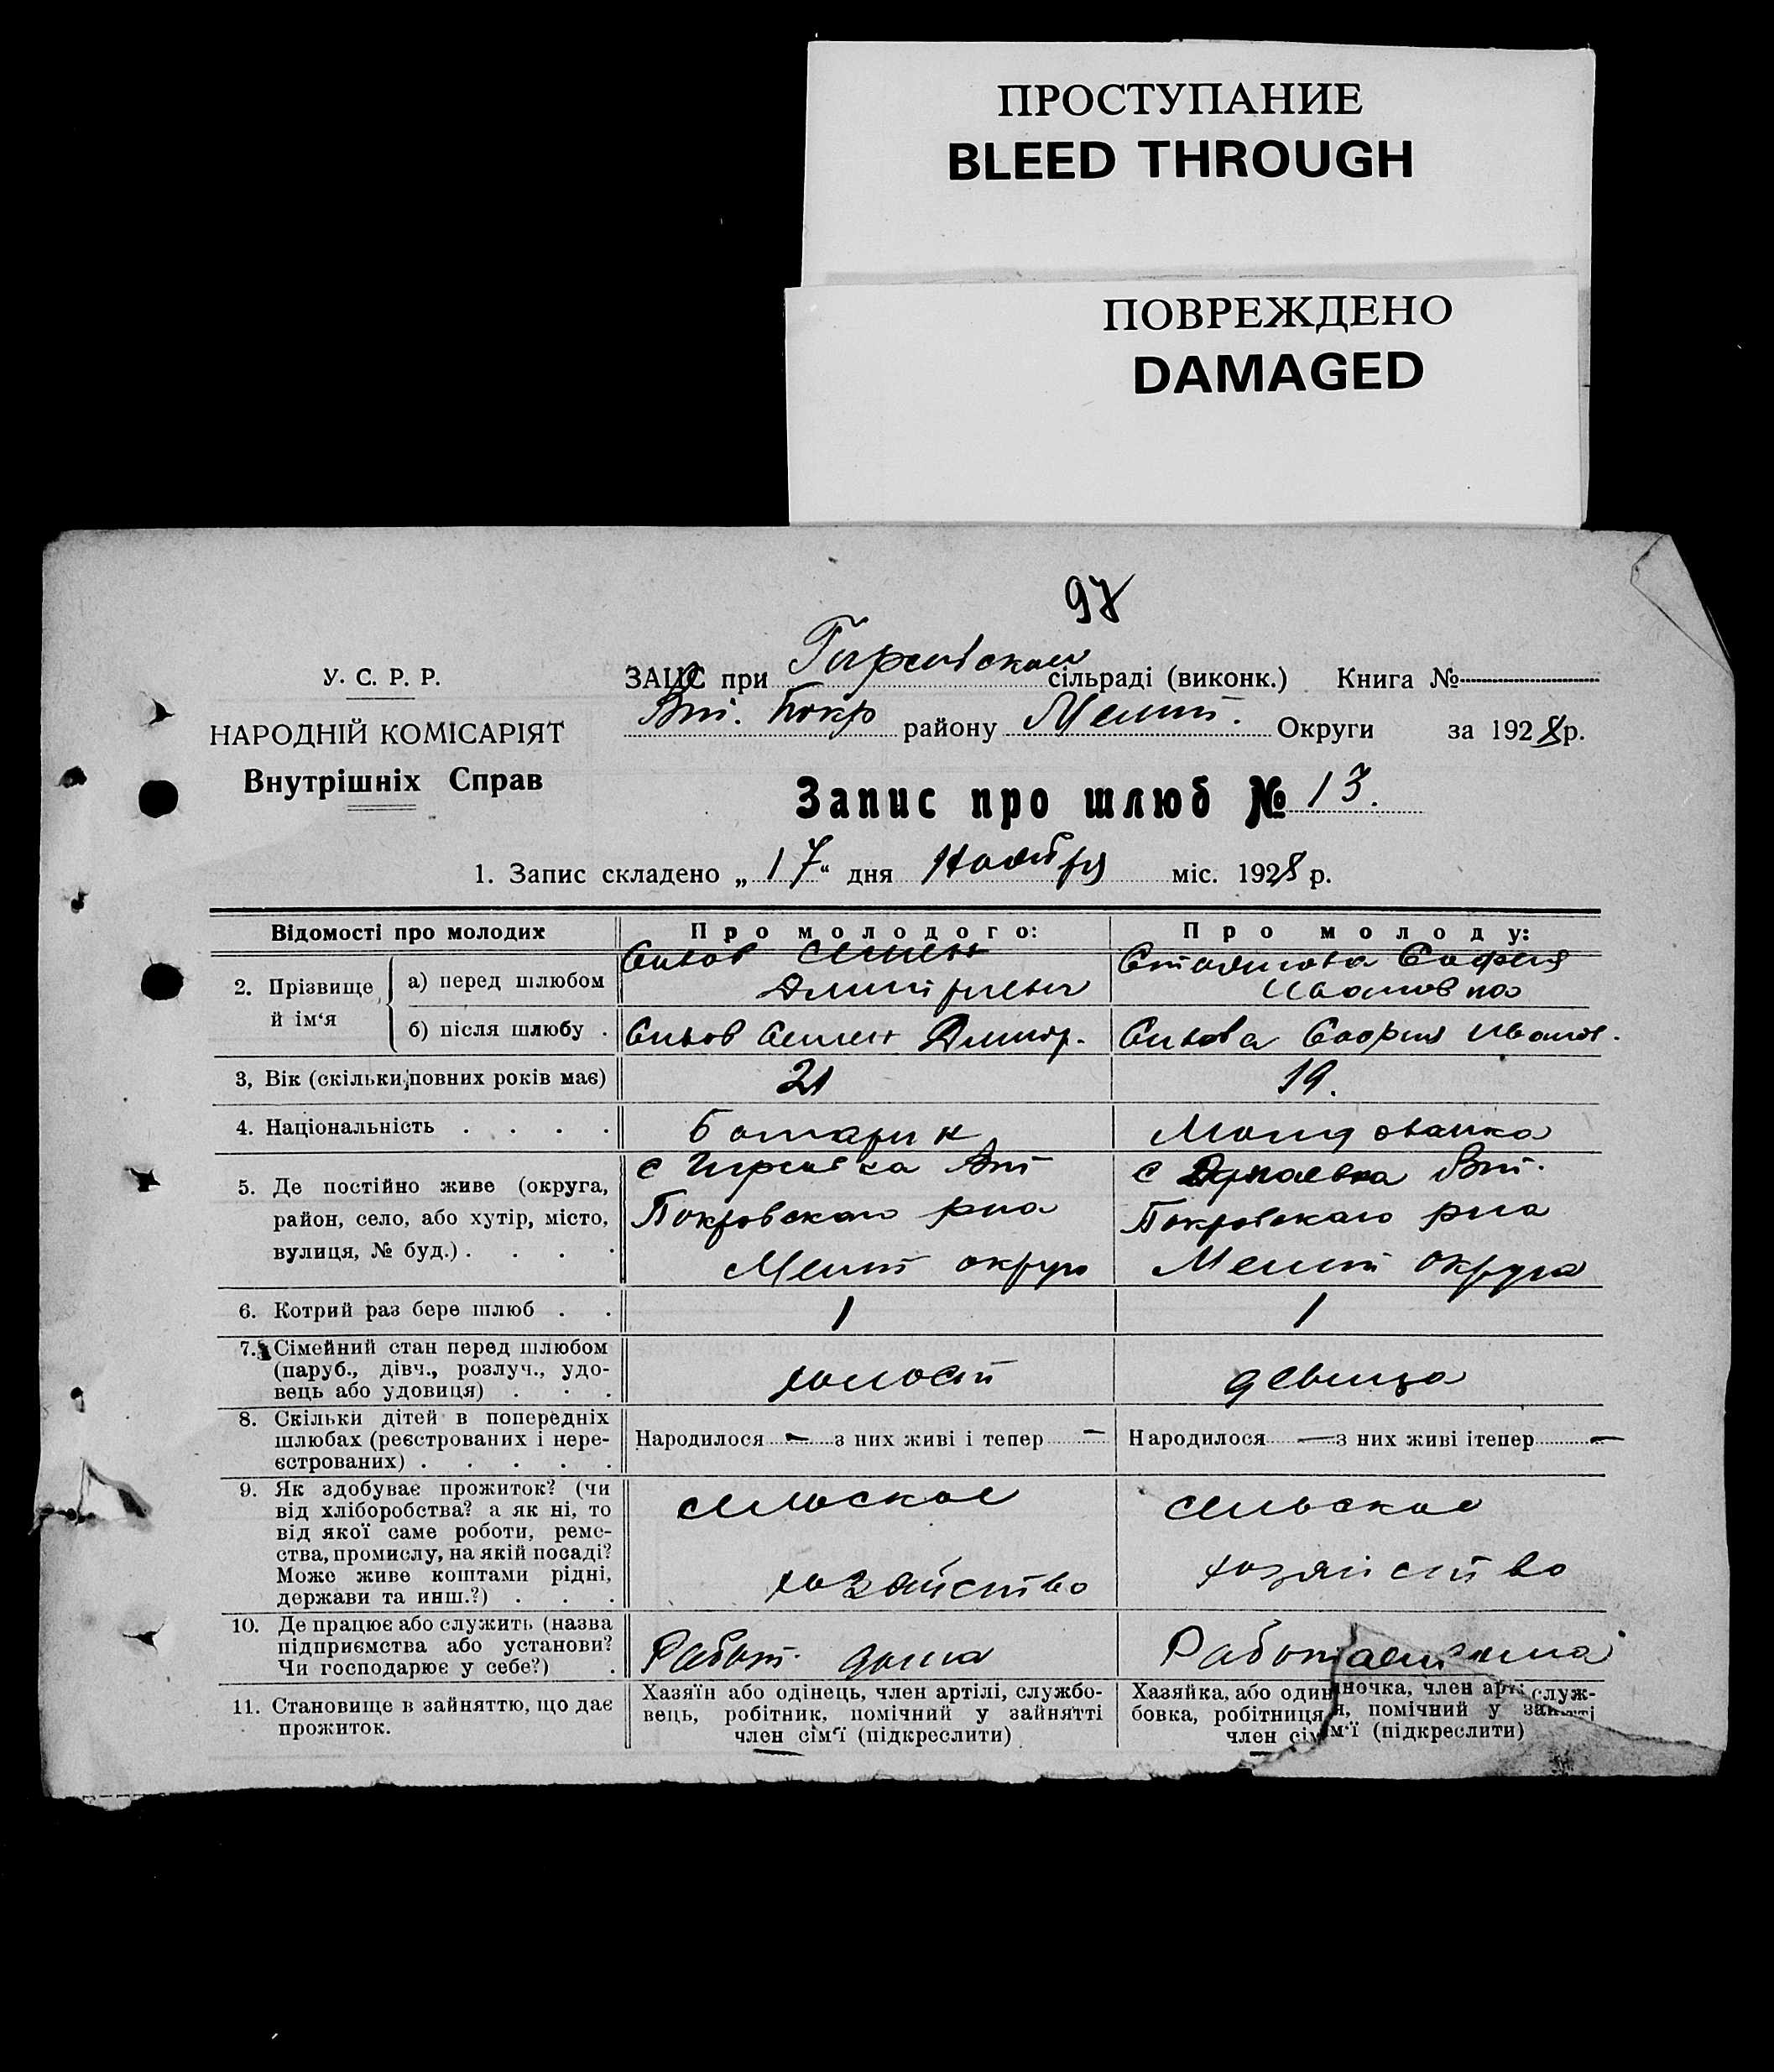 ПРОСТУПАНИЕ
BLEED THROUGH
ПОВРЕЖДЕНО
DAMAGED
97
У. С. Р. Р.
НАРОДНІЙ КОМІСАРІЯТ
Внутрішніх Справ
ЗАЦС при Гирсовском сільраді (виконк.) Книга №
Вт. Покр району Мелит. Округи за 1928 р.
Запис про шлюб № 13.
1. Запис складено „17“ дня Ноября міс. 1928 р.
Відомості про молодих Про молодого: Про молоду:
2. Прізвище й ім‘я
а) перед шлюбом Сивов Семен Дмитриевич Стоянова София Ивановна
б) після шлюбу . Сивов Семен Дмитр. Сивова София Иванов.
3, Вік (скільки повних років має) 21 19.
4. Національність . . . . Болгарин Молдованка
5. Де постійно живе (округа, с Гирсовка Вт с Дунаевка Вт.
район, село, або хутір, місто, Покровскаго рна Покровскаго рна
вулиця, № буд.) . . . . Мелит округи Мелит округа
6. Котрий раз бере шлюб . . 1 1
7. Сімейний стан перед шлюбом
(паруб., дівч., розлуч., удо-
вець або удовиця) . . . холост девица
8. Скільки дітей в попередніх
шлюбах (реєстрованих і нере-
єстрованих) . . . . .
Народилося — з них живі і тепер — Народилося — з них живі ітепер —
9. Як здобуває прожиток? (чи
від хліборобства? а як ні, то
від якої саме роботи, реме-
ства, промислу, на якій посаді?
Може живе коштами рідні,
держави та инш.?) . . .
сельское сельское
хозяйство хозяйство
10. Де працює або служить (назва
підприємства або установи?
Чи господарює у себе?) .
Работ. дома Работает
11. Становище в зайняттю, що дає
прожиток.
Хазяїн або одінець, член артілі, службо-
вець, робітник, помічний у зайнятті
член сім‘ї (підкреслити)
Хазяйка, або одиночка, член арт служ-
бовка, робітниця, помічний у зайнятті
член сім‘ї (підкреслити)